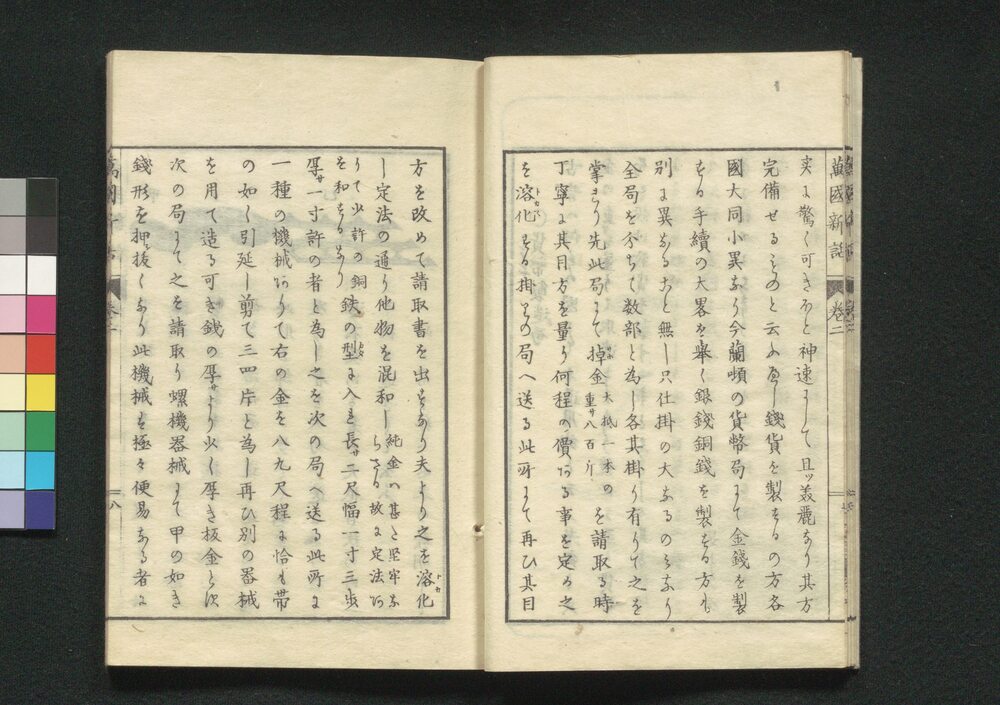 萬國新話
卷二
実に驚く可きほと神速にして且ッ義麗なり其方
完備せるものと云ふべし錢貨を製するの方各
國大同小異なり今蘭頓の貨幣局にて金錢を製
する手續の大畧を舉く銀錢銅錢を製する方も
別に異なるおと無し只仕掛の大なるのみなり
全局を分ちて数部と為し各其掛り有りて之を
掌さり先此局にて掉金大抵一本の重サ八百斤を請取る時
丁寧に其目方を量り何程の價ある事を定め之
を溶化する掛りの局へ送る此所にて再ひ其目
方を改めて請取書を出すなり夫より之を溶化
し定法の通り他物を混和し純金ハ甚た堅牢ならさる故に定法あ
りて少許の銅を和するなり鉄の型に入れ長サ二尺幅一寸三歩
厚サ一寸許の者と為し之を次の局へ送る此所に
一種の機械ありて右の金を八九尺程に恰も帯
の如く引延し剪て三四片と為し再ひ別の器械
を用て造る可き錢の厚サより少く厚き扳金とす
次の局にて之を請取り螺機器械にて甲の如き
錢形を押抜くなり此機械も極々便易なる者に
八